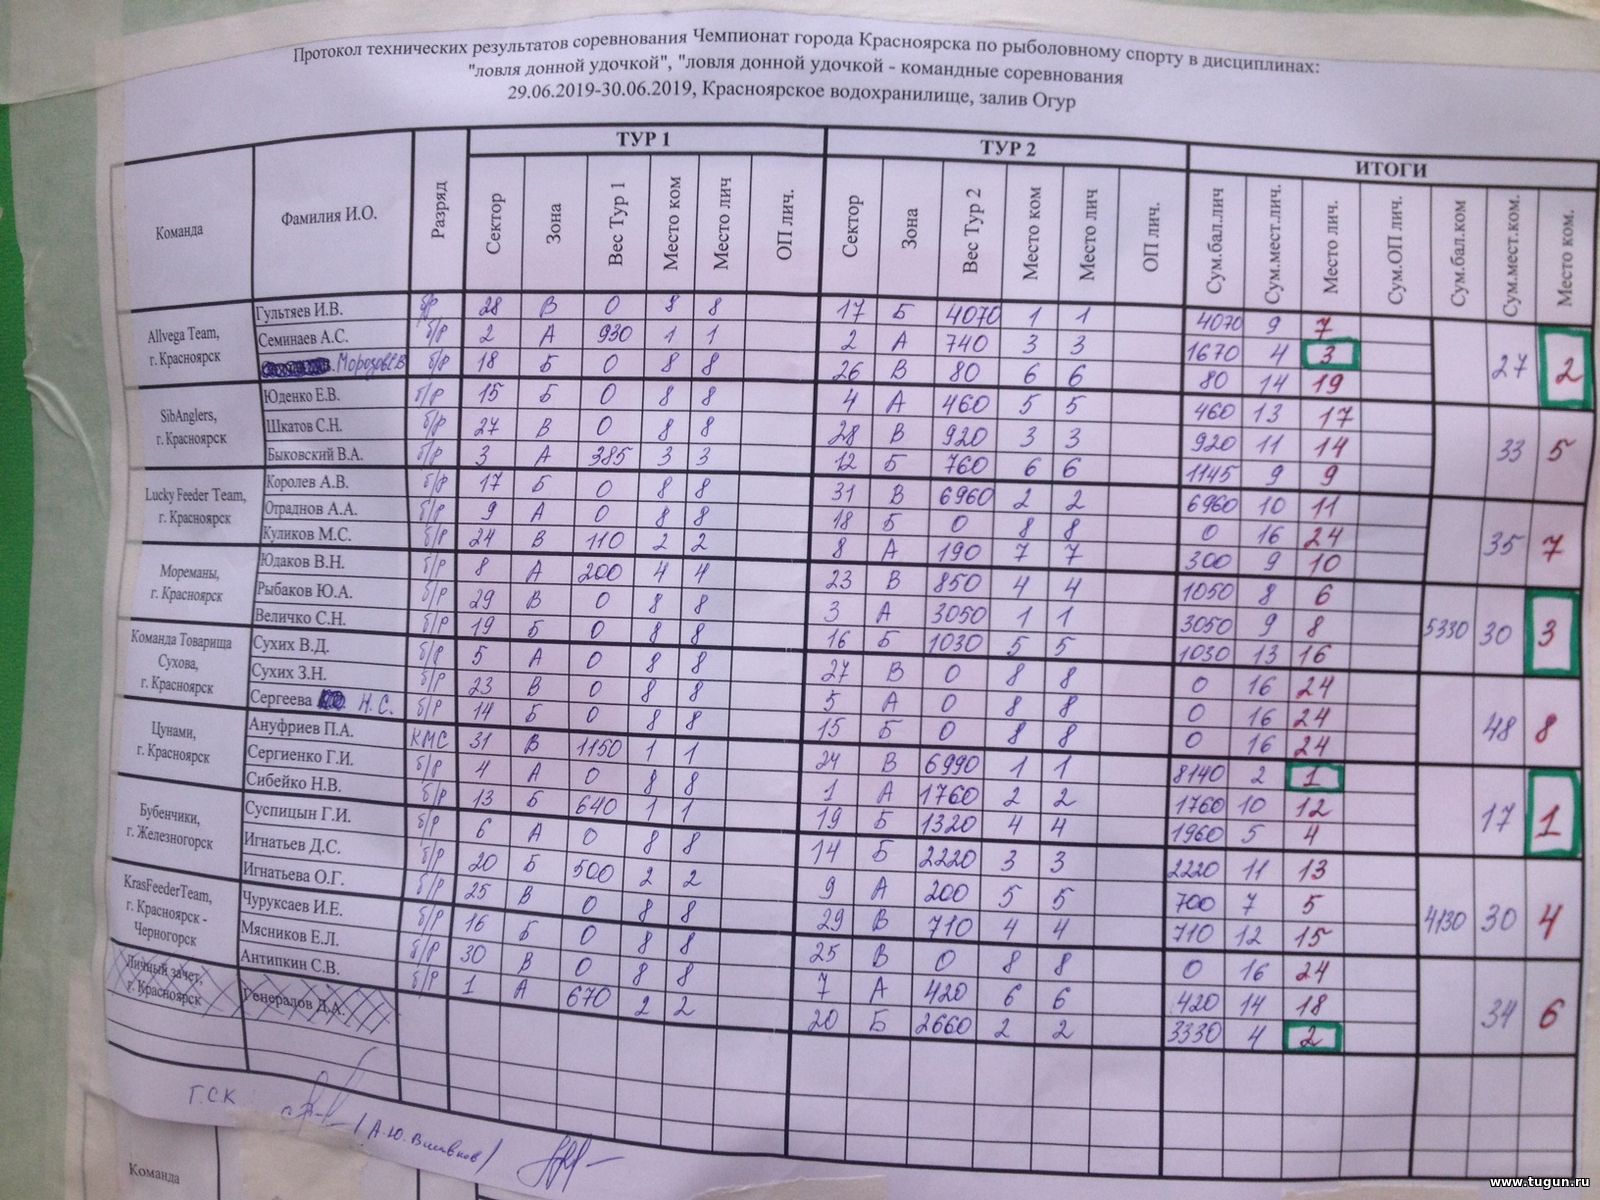 Протокол технических результатов соревнования Чемпионат города Красноярска по рыболовному спорту в дисциплинах:
"ловля донной удочкой", "ловля донной удочкой - командные соревнования
29.06.2019-30.06.2019, Красноярское водохранилище, залив Огур
ТУР 1 ТУР 2 ИТОГИ
Команда Фамилия И.О. Разряд Сектор Зона Вес Тур 1 Место ком Место лич ОП лич. Сектор Зона Вес Тур 2 Место ком Место лич ОП лич. Сум.бал.лич Сум.мест.лич. Место лич. Сум.ОП лич. Сум.бал.ком Сум.мест.ком. Место ком.
Allvega Team,
г. Красноярск
Гультяев И.В. б/р 28 В 0 8 8 17 Б 4070 1 1 4070 9 7
Семинаев А.С. б/р 2 А 930 1 1 2 А 740 3 3 1670 4 3 27 2
Морозов Е.В б/р 18 Б 0 8 8 26 В 80 6 6 80 14 19
SibAnglers,
г. Красноярск
Юденко Е.В. б/р 15 Б 0 8 8 4 А 460 5 5 460 13 17
Шкатов С.Н. б/р 27 В 0 8 8 28 В 920 3 3 920 11 14 33 5
Быковский В.А. б/р 3 А 385 3 3 12 Б 760 6 6 1145 9 9
Lucky Feeder Team,
г. Красноярск
Королев А.В. б/р 17 Б 0 8 8 31 В 6960 2 2 6960 10 11
Отраднов А.А. б/р 9 А 0 8 8 18 Б 0 8 8 0 16 24 35 7
Куликов М.С. б/р 24 В 110 2 2 8 А 190 7 7 300 9 10
Мореманы,
г. Красноярск
Юдаков В.Н. б/р 8 А 200 4 4 23 В 850 4 4 1050 8 6
Рыбаков Ю.А. б/р 29 В 0 8 8 3 А 3050 1 1 3050 9 8 5330 30 3
Величко С.Н. б/р 19 Б 0 8 8 16 Б 1030 5 5 1030 13 16
Команда Товарища
Сухова,
г. Красноярск
Сухих В.Д. б/р 5 А 0 8 8 27 В 0 8 8 0 16 24
Сухих З.Н. б/р 23 В 0 8 8 5 А 0 8 8 0 16 24 48 8
Сергеева Н.С. б/р 14 Б 0 8 8 15 Б 0 8 8 0 16 24
Цунами,
г. Красноярск
Ануфриев П.А. КМС 31 В 1150 1 1 24 В 6990 1 1 8140 2 1
Сергиенко Г.И. б/р 4 А 0 8 8 1 А 1760 2 2 1760 10 12 17 1
Сибейко Н.В. б/р 13 Б 640 1 1 19 Б 1320 4 4 1960 5 4
Бубенчики,
г. Железногорск
Суспицын Г.И. б/р 6 А 0 8 8 14 Б 2220 3 3 2220 11 13
Игнатьев Д.С. б/р 20 Б 500 2 2 9 А 200 5 5 700 7 5 4130 30 4
Игнатьева О.Г. б/р 25 В 0 8 8 29 В 710 4 4 710 12 15
KrasFeederTeam,
г. Красноярск -
Черногорск
Чуруксаев И.Е. б/р 16 Б 0 8 8 25 В 0 8 8 0 16 24
Мясников Е.Л. б/р 30 В 0 8 8 7 А 420 6 6 420 14 18 34 6
Антипкин С.В. б/р 1 А 670 2 2 20 Б 2660 2 2 3330 4 2
Личный зачет,
г. Красноярск
Генералов Д.А.
Г.С.К
Команда
www.tugun.ru